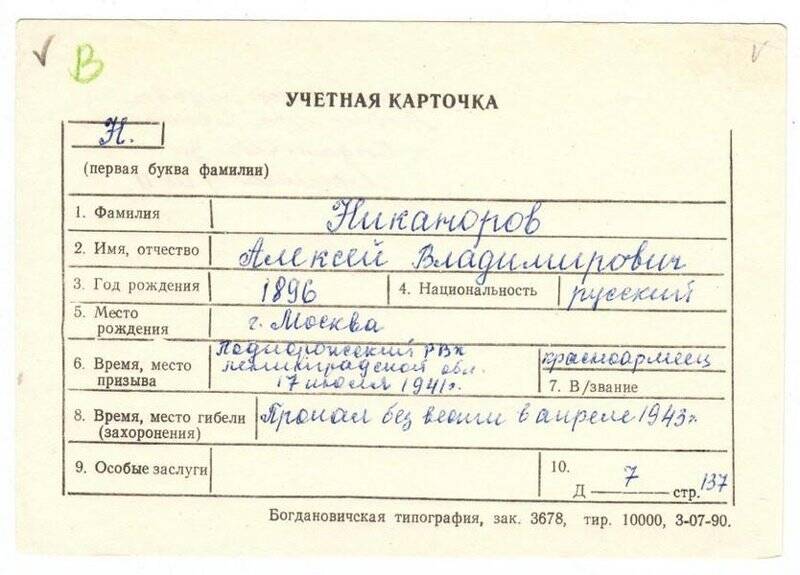 В
УЧЕТНАЯ КАРТОЧКА
Н.
(первая буква фамилии)
1. Фамилия Никаноров
2. Имя, отчество Алексей Владимирович
3. Год рождения 1896 4. Национальность русский
5. Место рождения г. Москва
6. Время, место призыва Подпорожский РВК
Ленинградской обл.
17 июля 1941г.
красноармеец
7. В/звание
8. Время, место гибели (захоронения) Пропал без вести в апреле 1943г.
9. Особые заслуги
10.
Д 7 стр. 137
Богдановичская типография, зак. 3678, тир. 10000, 3-07-90.